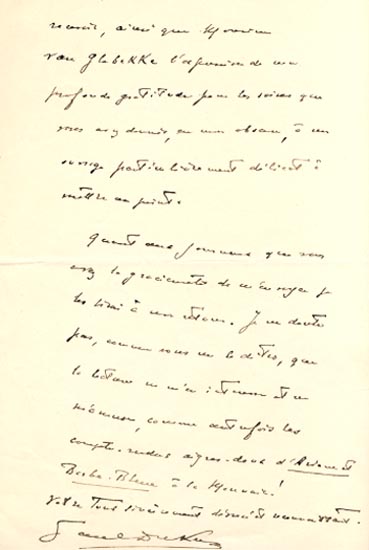 recevoir, ainsi que Monsieur
van Glabekke l'expression de ma
profonde gratitude pour les soins que
vous avez donnés, en mon absence, à un
ouvrage particulièrement délicat à
mettre au point.
Quant aux journaux que vous
avez la gracieuseté de m'envoyer je
les lirai à mon retour. Je ne doute
pas, comme vous me le dites, que
la lecture ne m'en intéresse et ne
m'amuse, comme autrefois les
compte-rendus aigres-doux d'Ariane et
Barbe-Bleue à la Monnaie!
Votre tous sincèrement dévoué et reconnaissant.
Paul Dukas